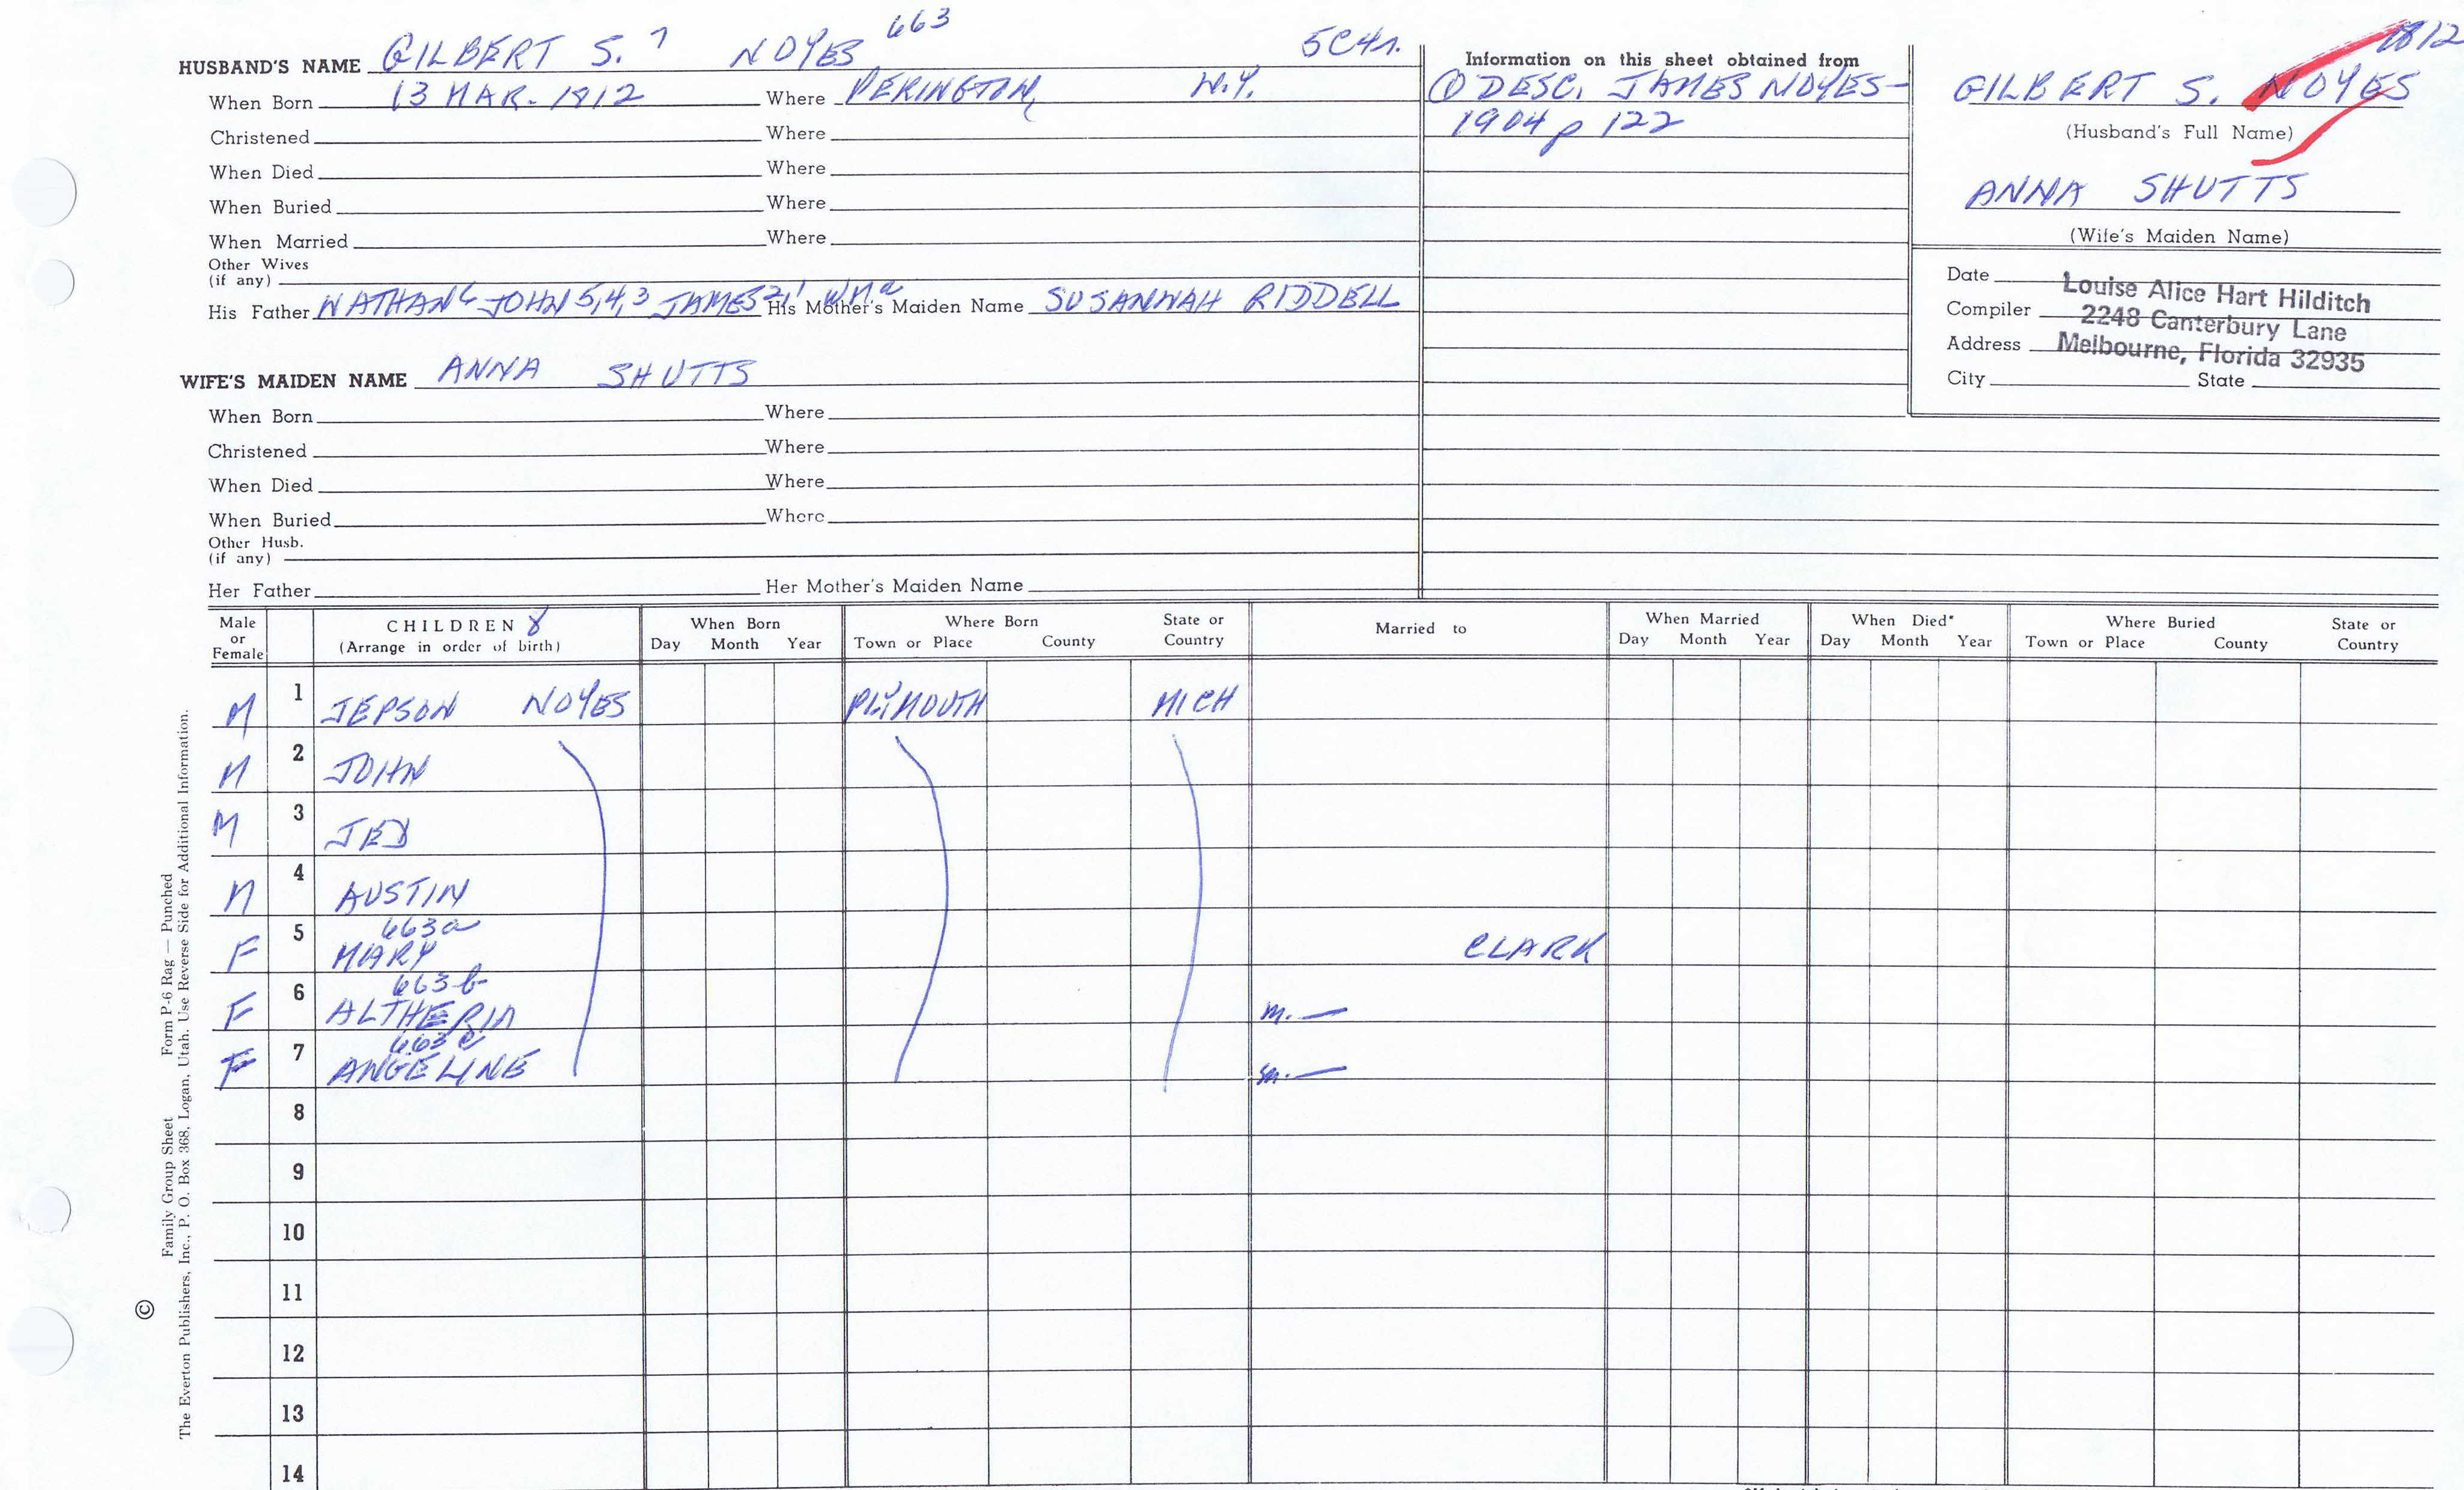 663
1812
HUSBAND'S NAME GILBERT S. 7 NOYES 5C4r.
When Born 13 MAR. 1812 Where PERINGTON, N.Y.
Christened Where
When Died Where
When Buried Where
When Married Where
Other Wives
(if any)
His Father NATHAN 6 JOHN 5,4,3 JAMES 2,1 Wm a His Mother's Maiden Name SUSANNAH RIDDELL
WIFE'S MAIDEN NAME ANNA SHUTTS
When Born Where
Christened Where
When Died Where
When Buried Where
Other Husb.
(if any)
Her Father Her Mother's Maiden Name
Information on this sheet obtained from
① DESC. JAMES NOYES-
1904 p 122
GILBERT S. NOYES
(Husband's Full Name)
ANNA SHUTTS
(Wife's Maiden Name)
Date
Compiler
Address
City State
Louise Alice Hart Hilditch
2248 Canterbury Lane
Melbourne, Florida 32935
Male or Female CHILDREN 8 (Arrange in order of birth) When Born Day Month Year Where Born Town or Place County State or Country Married to When Married Day Month Year When Died* Day Month Year Where Buried Town or Place County State or Country
M 1 JEPSON NOYES PLYMOUTH MICH
M 2 JOHN
M 3 JED
M 4 AUSTIN
663a
F 5 MARY CLARK
663b
F 6 ALTHERIA m. —
663c
F 7 ANGELINE m. —
8
9
10
11
12
13
14
Family Group Sheet Form P-6 Rag — Punched
© The Everton Publishers, Inc., P. O. Box 368, Logan, Utah. Use Reverse Side for Additional Information.